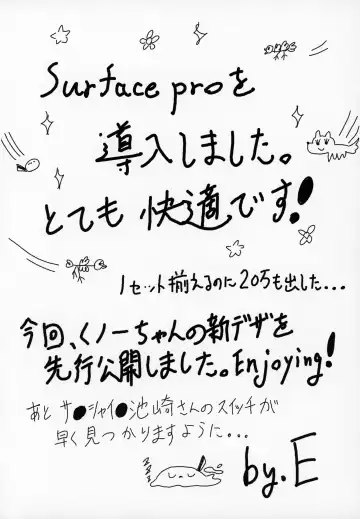 Surface proを
導入しました。
とても快適です!
1セット揃えるのに20万も出した...
今回、くノ一ちゃんの新デザを
先行公開しました。Enjoying!
あと サ●シャイ●池崎さんのスイッチが
早く見つかりますように...
by.E